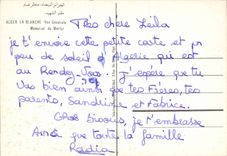 الجزائر البيضاء، منظر عام
مقام الشهيد
ALGER LA BLANCHE Vue Générale
Mémorial du Martyr
Très chère Leïla
je t'envoie cette petite carte et un
peu de soleil d'Algérie qui est
au Rendez-Vous. J'espère que tu
vas bien ainsi que tes Frères, tes
parents, Sandrine et Fabrice.
Gros bisous, je t'embrasse
Ainsi que toute la famille
Radia